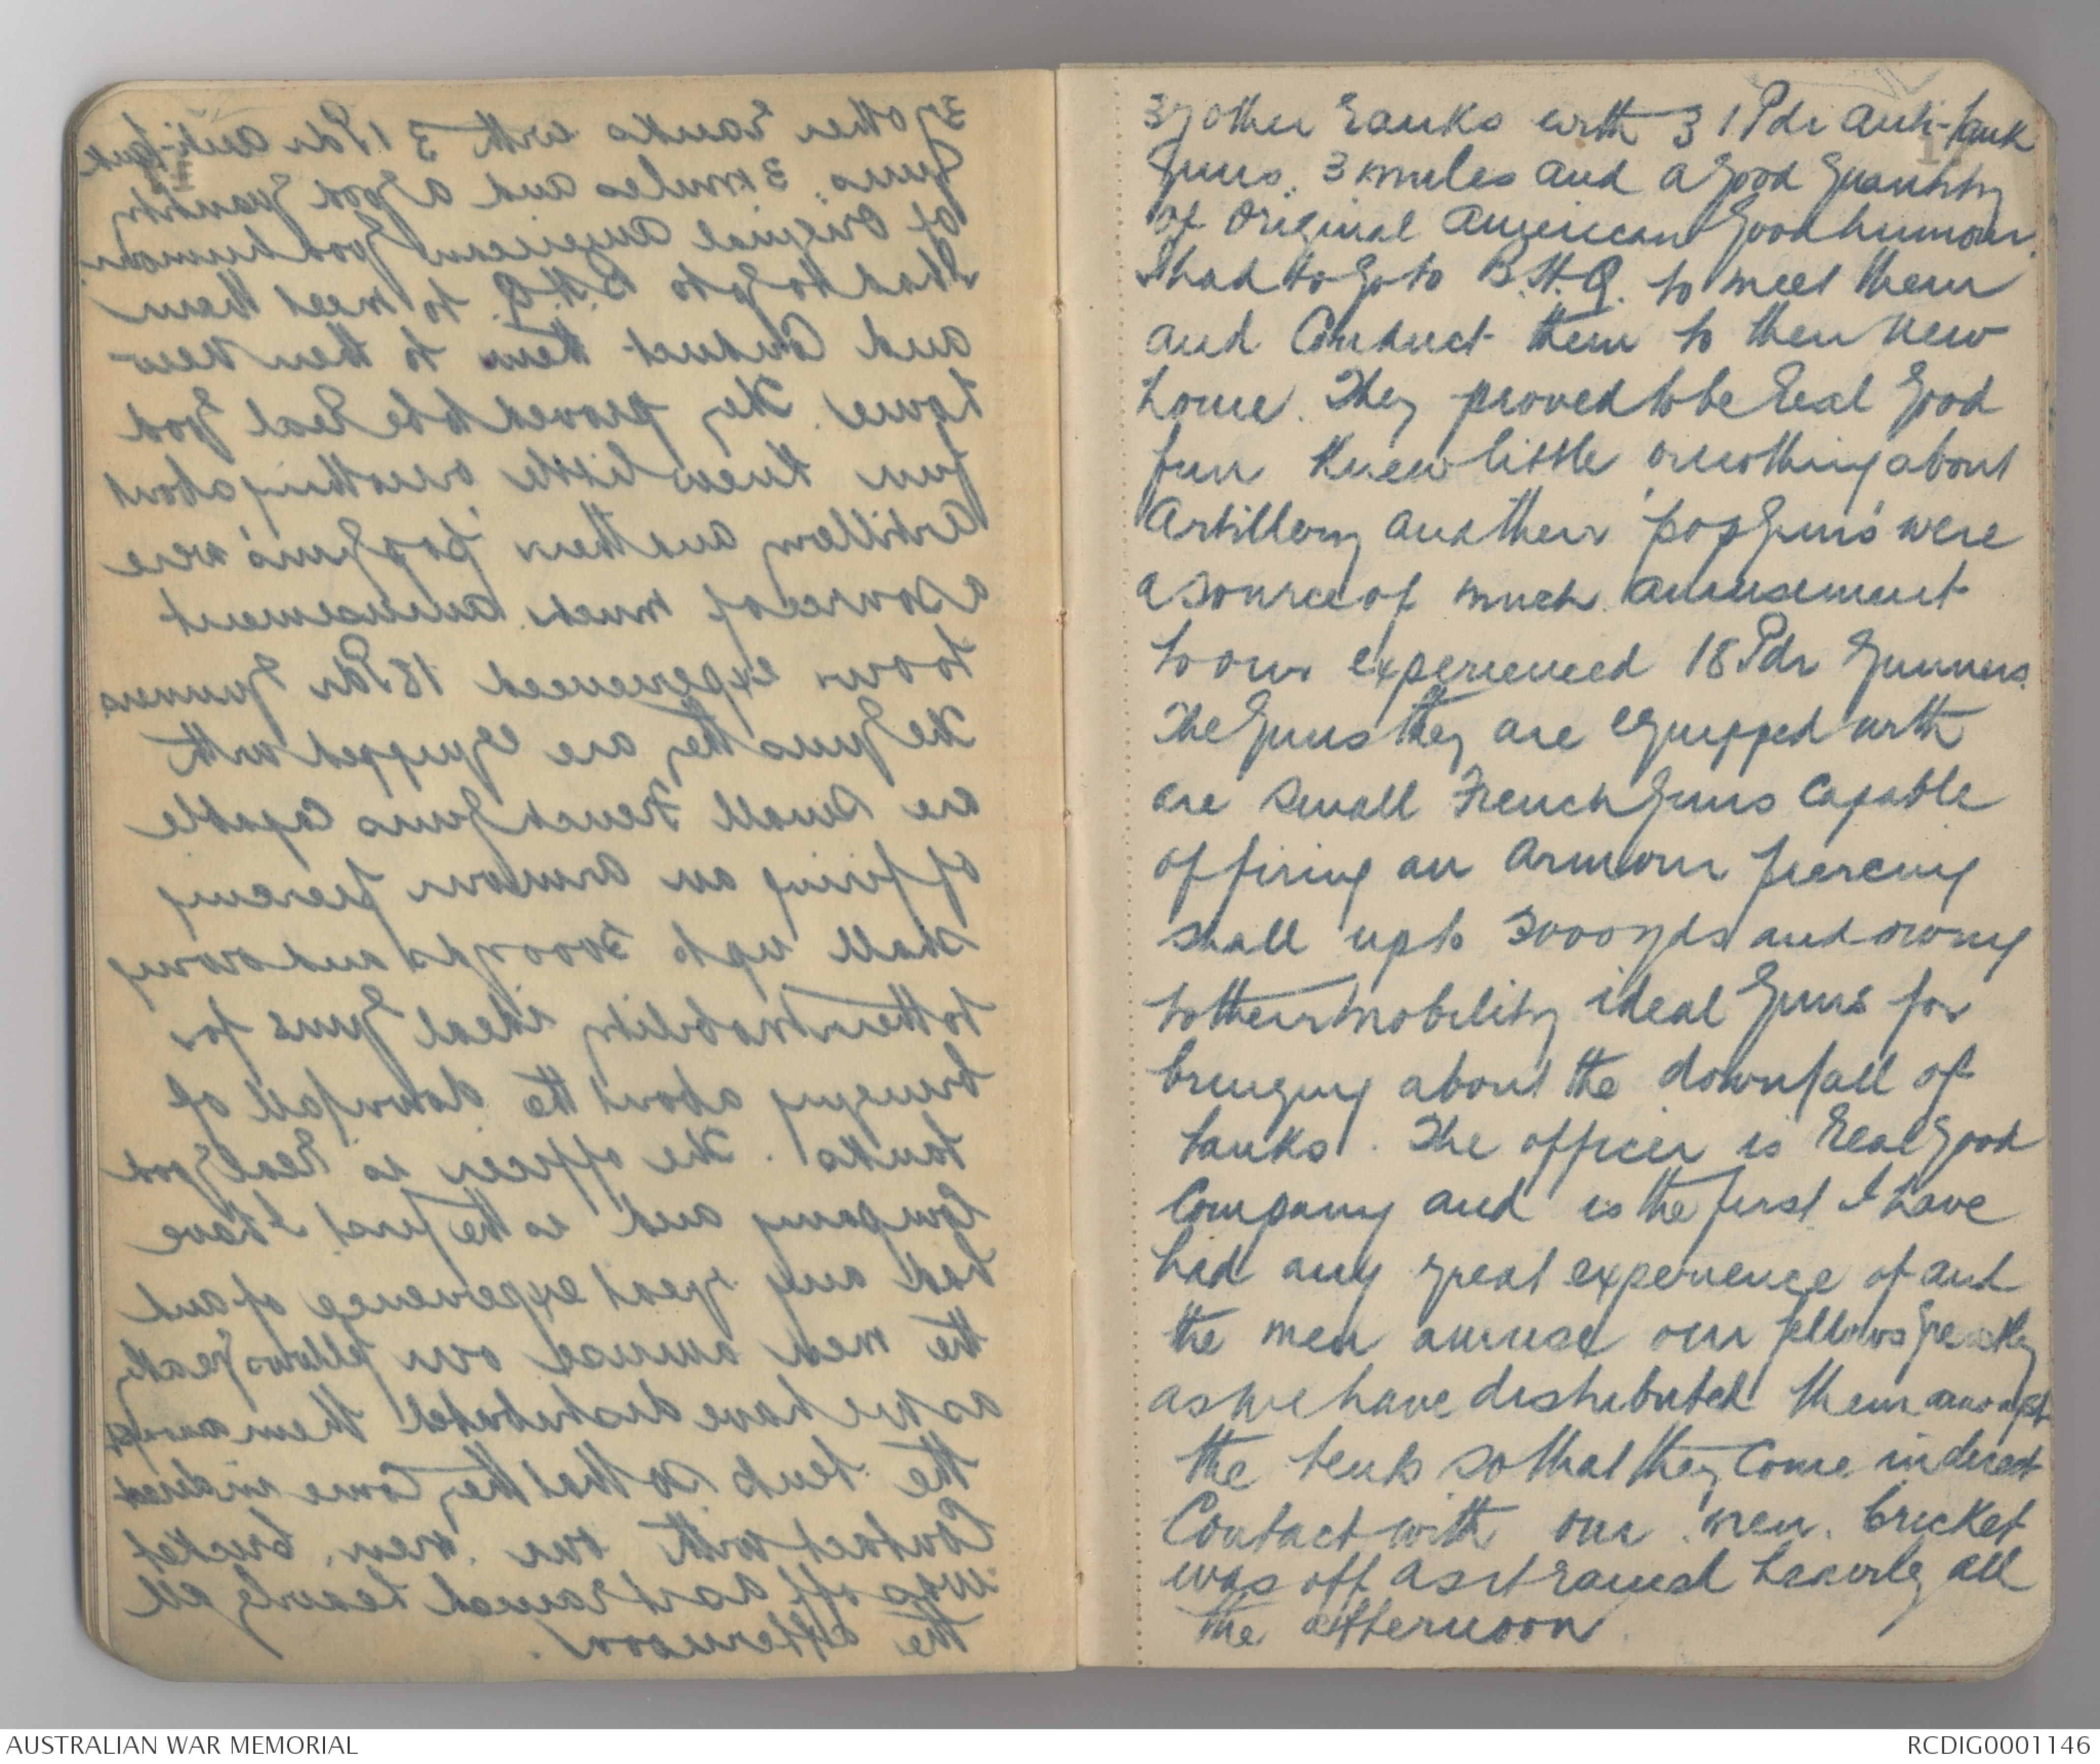 37 other ranks with 3 1 Pdr Anti-tank
guns. 3 mules and a good quantity
of original American good humour.
I had to go to B.H.Q. to meet them
and conduct them to their new
home. They proved to be real good
fun knew little or nothing about
Artillery and their 'pop guns' were
a source of much amusement
to our experienced 18 Pdr Gunners.
The guns they are equipped with
are small French guns capable
of firing an armour piercing
shell up to 3000 yds and owing
to their mobility ideal guns for
bringing about the downfall of
tanks. The officer is real good
company and is the first I have
had any great experience of and
the men amuse our fellows greatly
as we have distributed them amongst
the tents so that they come in direct
contact with our men. Cricket
was off as it rained heavily all
the afternoon.
AUSTRALIAN WAR MEMORIAL
RCDIG0001146